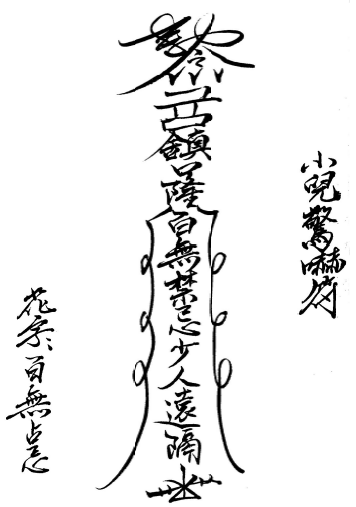 小兒驚嚇符
鎮
百無禁忌少人遠隔
花字百無占忌